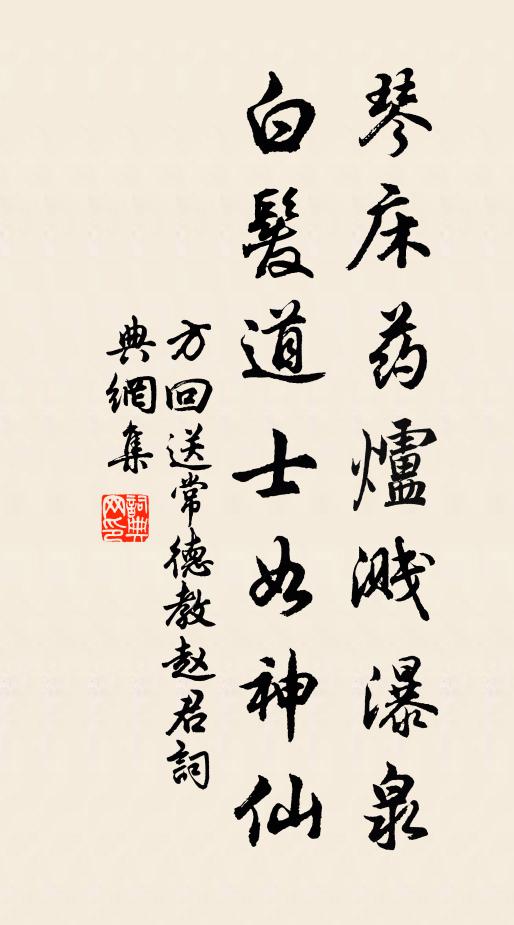 琴床药爐溅瀑泉
白髮道士如神仙
方回送常德教赵君詞
典網集
詞典網印